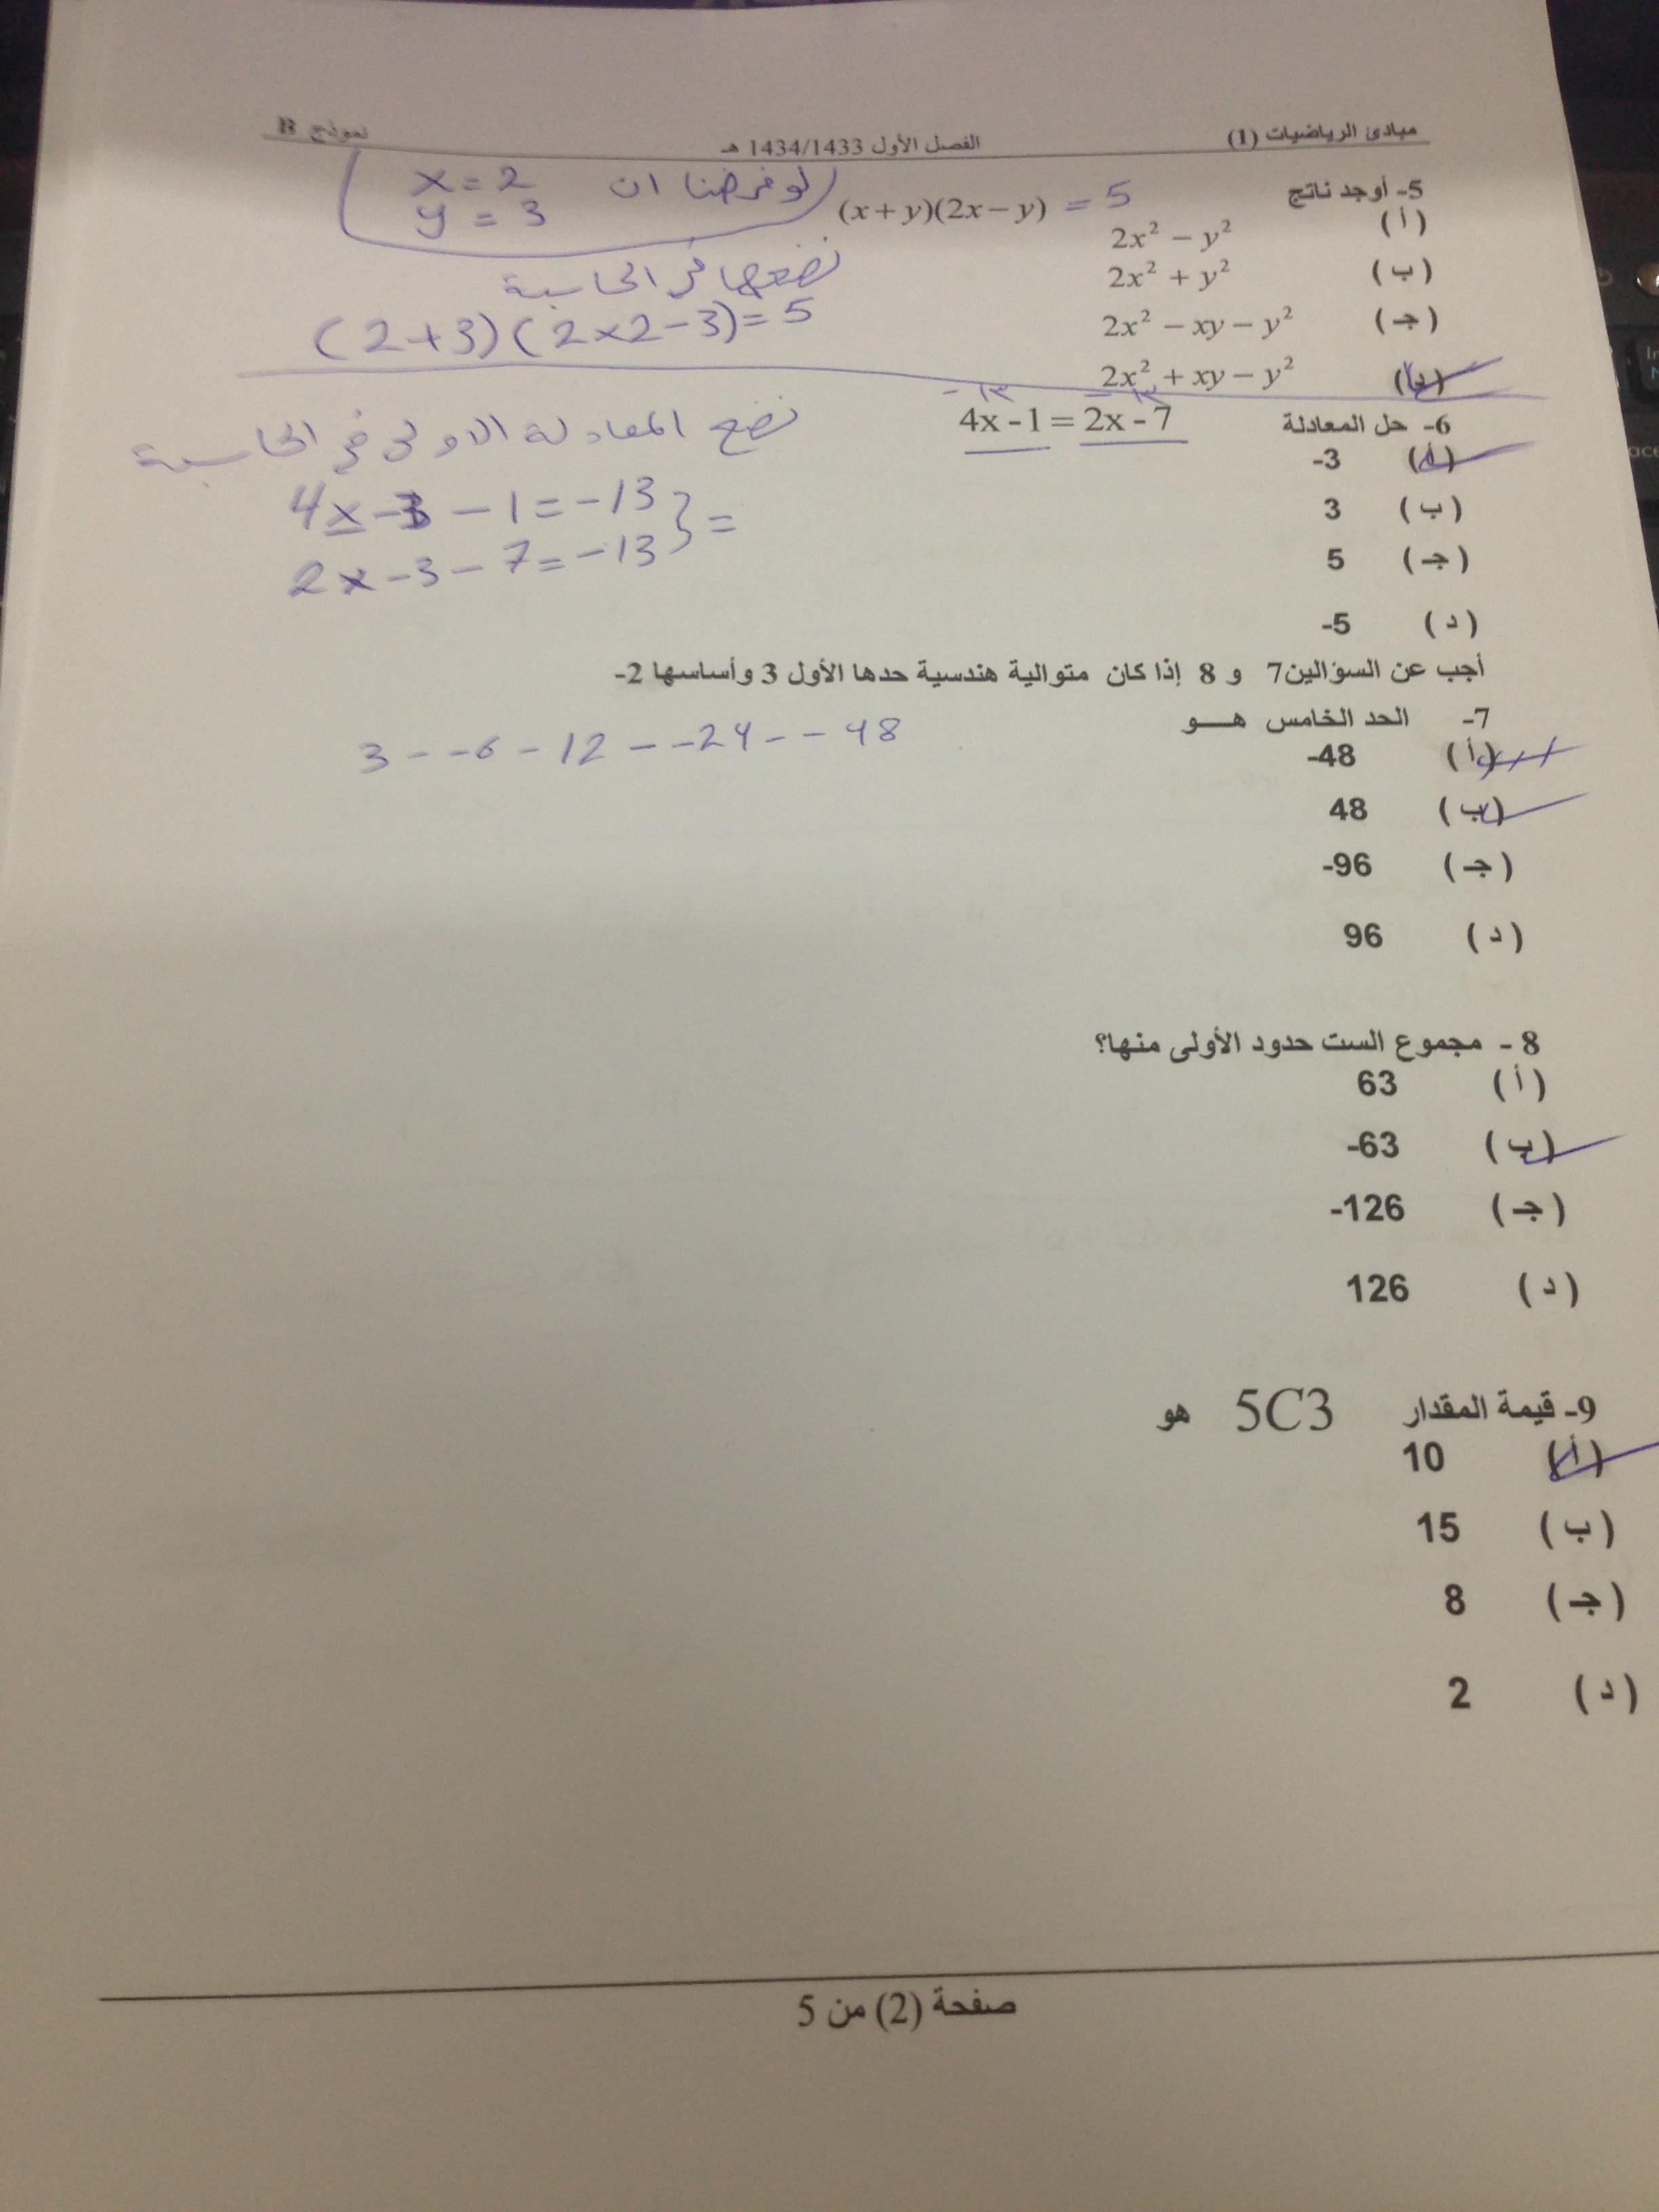 مبادئ الرياضيات (1) الفصل الأول 1434/1433 هـ نموذج B
5- أوجد ناتج (x+y)(2x−y) = 5 لو فرضنا ان x = 2
y = 3
(أ) 2x² − y²
نضعها في الحاسبة
(ب) 2x² + y²
(2+3)(2×2−3)=5
(جـ) 2x² − xy − y²
(د) 2x² + xy − y²
−١٣ −١٣
6- حل المعادلة 4x -1 = 2x - 7
نضع المعادلة الاولى في الحاسبة
(أ) -3
4x -3 - 1 = -13
(ب) 3
2x -3 - 7 = -13 } =
(جـ) 5
(د) -5
أجب عن السؤالين7 و 8 إذا كان متوالية هندسية حدها الأول 3 وأساسها 2-
7- الحد الخامس هـــو
3 - -6 - 12 - -24 - - 48
(أ) -48
(ب) 48
(جـ) -96
(د) 96
8 - مجموع الست حدود الأولى منها؟
(أ) 63
(ب) -63
(جـ) -126
(د) 126
9- قيمة المقدار 5C3 هو
(أ) 10
(ب) 15
(جـ) 8
(د) 2
صفحة (2) من 5